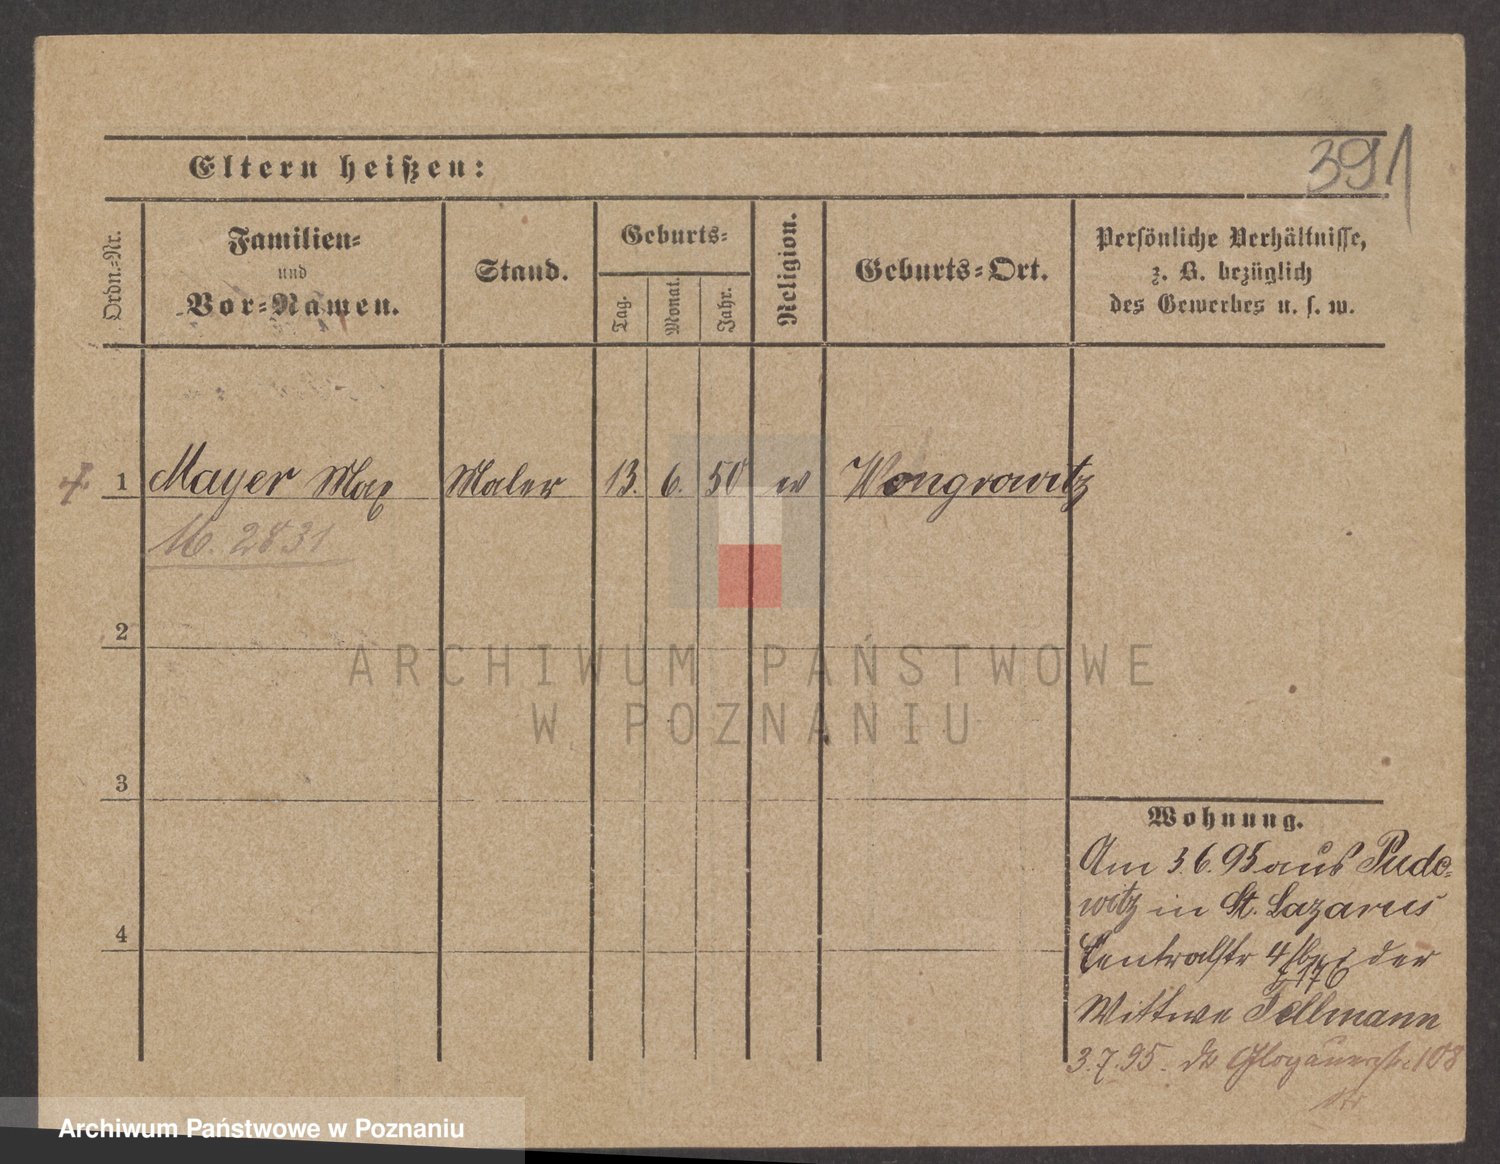 391
Eltern heißen:
Ordn.=Nr.
Familien=
und
Vor=Namen.
Stand.
Geburts=
Tag.
Monat.
Jahr.
Religion.
Geburts=Ort.
Persönliche Verhältnisse,
z. B. bezüglich
des Gewerbes u. s. w.
1 Mayer Max Maler 13. 6. 50 Wongrowitz
M. 2831
2
3
4
Wohnung.
Am 3.6.95 aus Pudo=
witz in St. Lazarus
Centralstr 4 bei der
Wittwe Tellmann
3.7.95. Glogauerstr. 108
ARCHIWUM PAŃSTWOWE
W POZNANIU
Archiwum Państwowe w Poznaniu